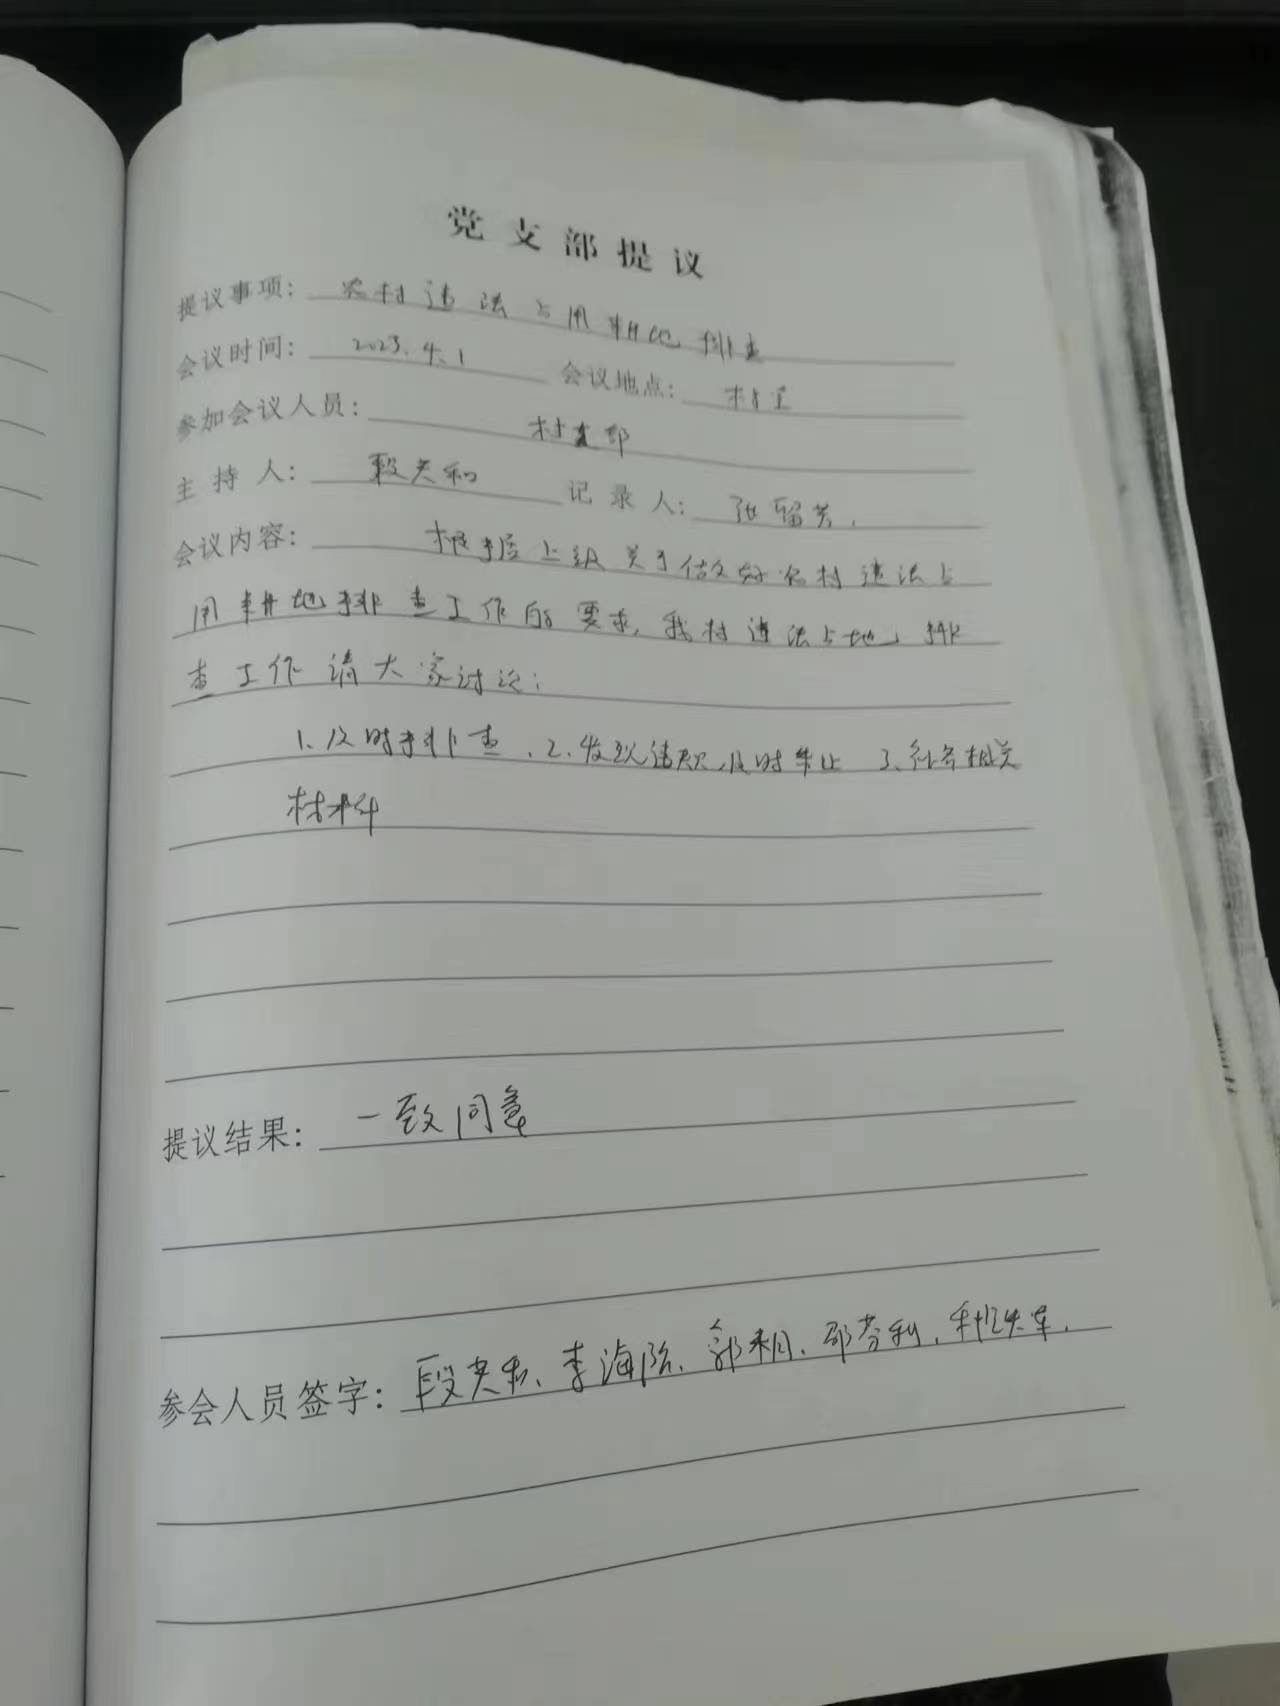 党支部提议
提议事项: 农村违法占用耕地排查
会议时间: 2023.4.1 会议地点: 村室
参加会议人员: 村支部
主持人: 段关和 记录人: 张留芳.
会议内容: 根据上级关于做好农村违法占
用耕地排查工作的要求,我村违法占地排
查工作请大家讨论:
1、及时排查.2.发现违规,及时牟止 3、补齐相关
材料
提议结果: 一致同意
参会人员签字: 段关和、李海